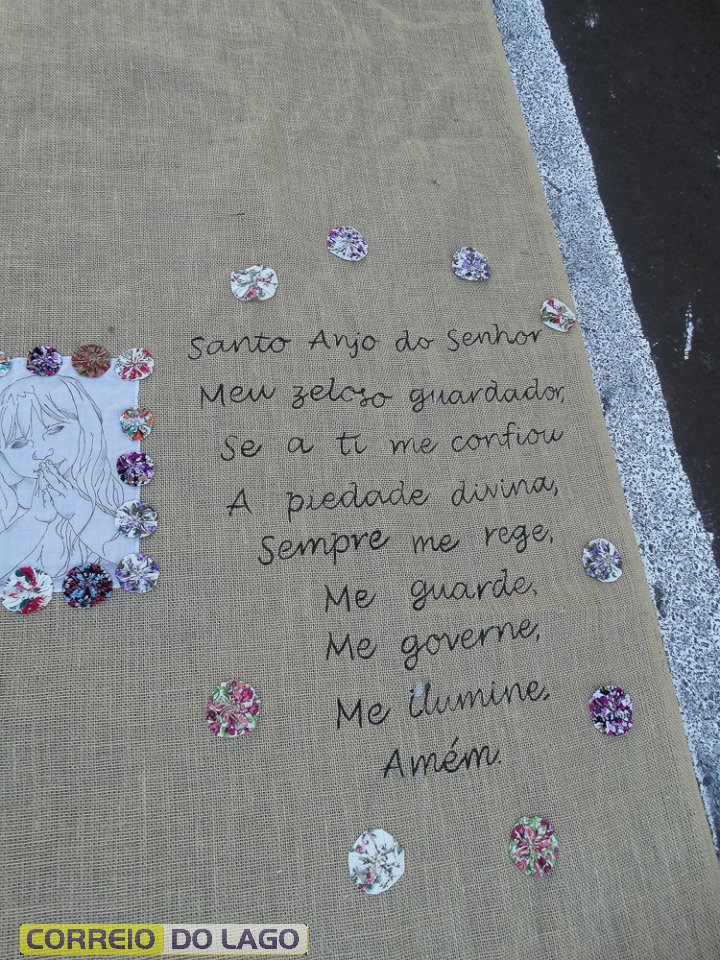 Santo Anjo do Senhor
Meu zeloso guardador,
Se a ti me confiou
A piedade divina,
Sempre me rege,
Me guarde,
Me governe,
Me ilumine,
Amém.
CORREIO DO LAGO